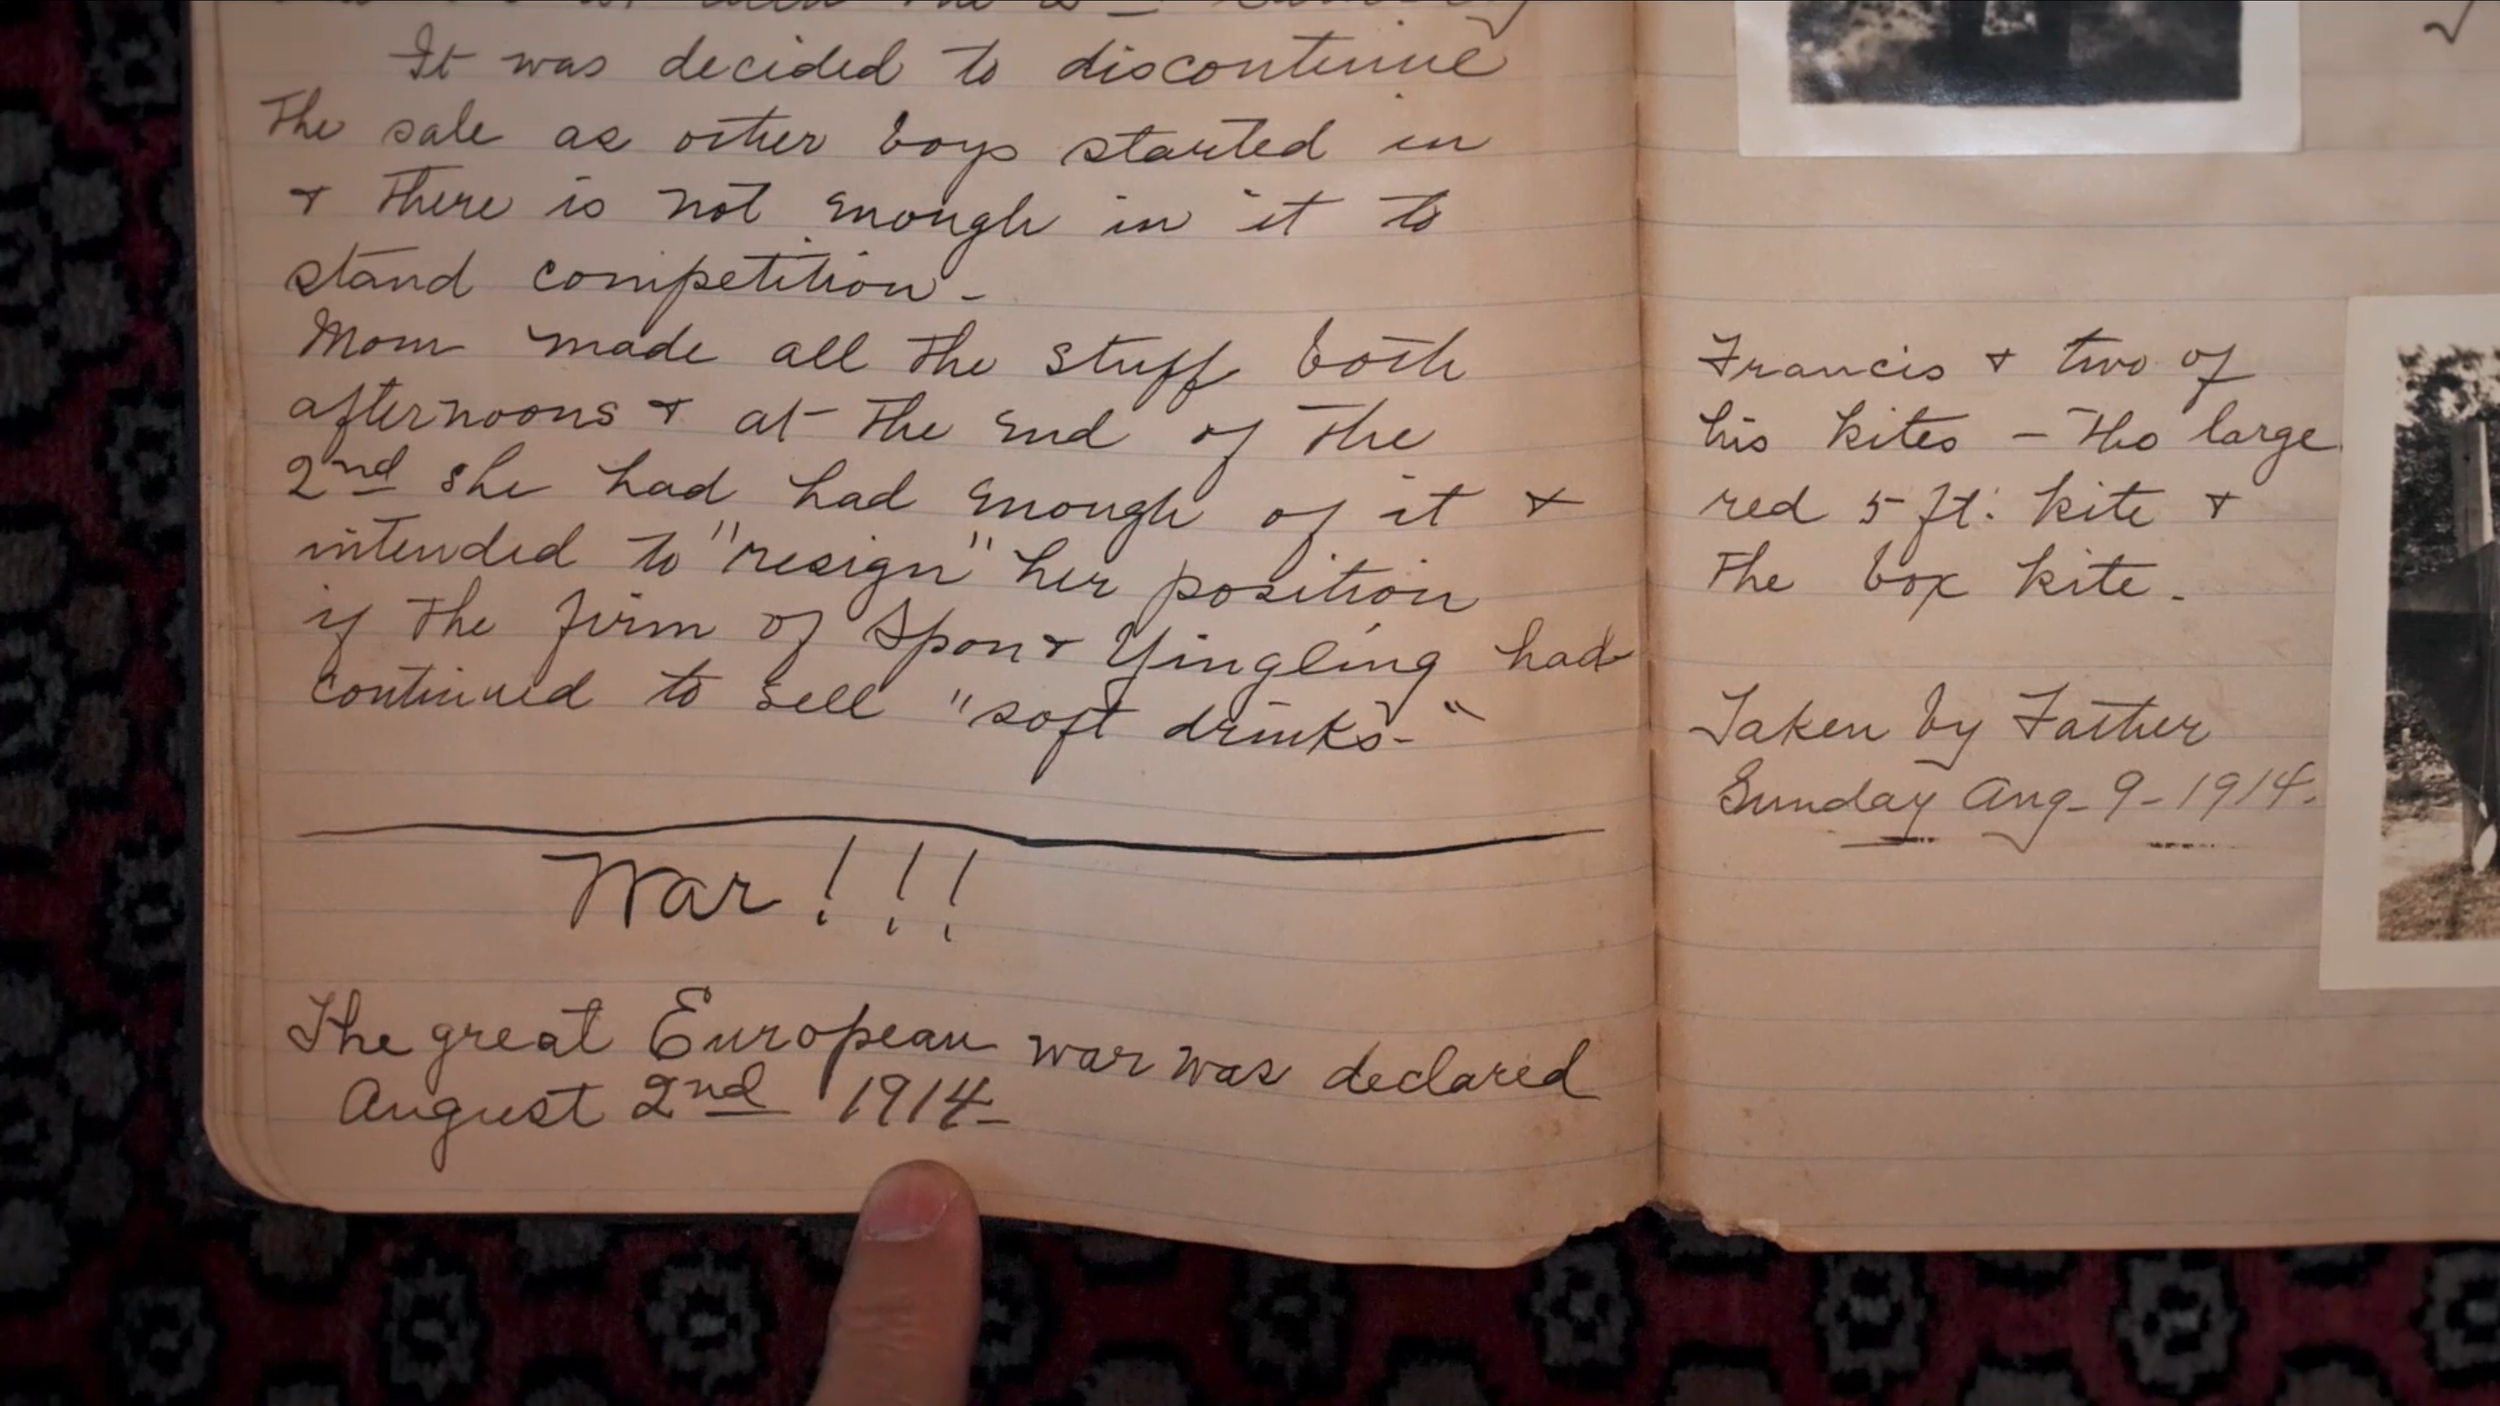 It was decided to discontinue
the sale as other boys started in
& there is not enough in it to
stand competition-
Mom made all the stuff both
afternoons & at the end of the
2nd she had had enough of it &
intended to "resign" her position
if the firm of Spon & Yingling had
continued to sell "soft drinks-"
War!!!
The great European war was declared
August 2nd 1914-
Francis & two of
his kites - The large
red 5 ft. kite &
the box kite.
Taken by Father
Sunday Aug- 9- 1914.